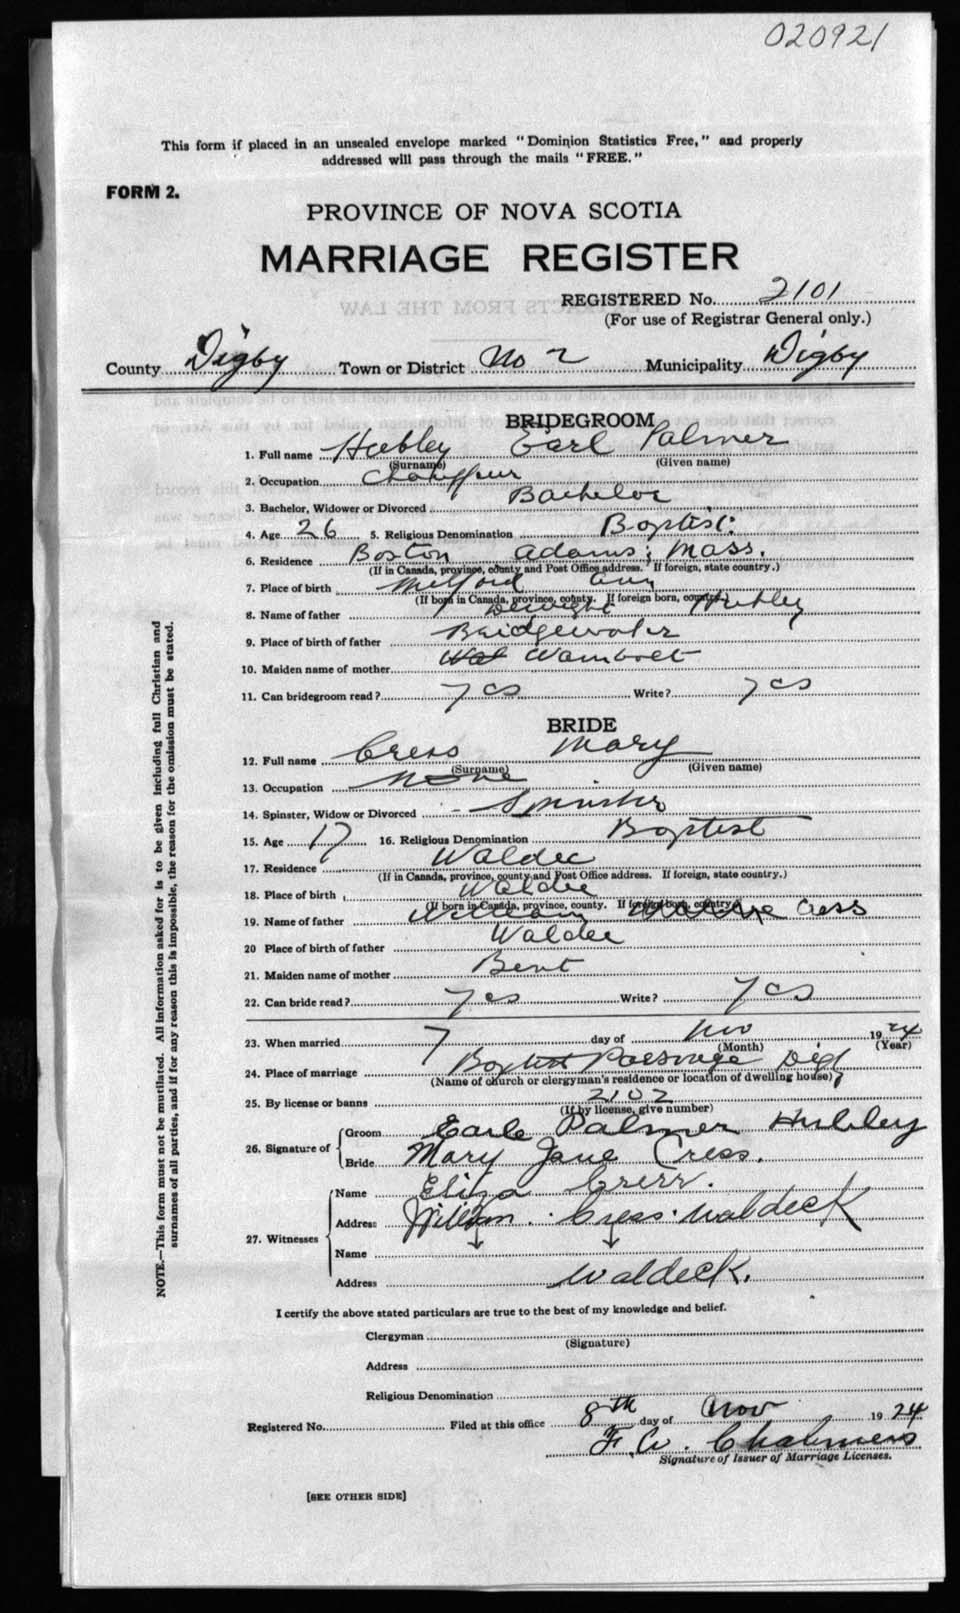 020921
This form if placed in an unsealed envelope marked "Dominion Statistics Free," and properly
addressed will pass through the mails "FREE."
FORM 2.
PROVINCE OF NOVA SCOTIA
MARRIAGE REGISTER
REGISTERED No. 2101
(For use of Registrar General only.)
County Digby Town or District No 2 Municipality Digby
BRIDEGROOM
1. Full name Hubley Earl Palmer
(Surname) (Given name)
2. Occupation Chauffeur
3. Bachelor, Widower or Divorced Bachelor
4. Age 26 5. Religious Denomination Baptist
6. Residence Boston Adams; Mass.
(If in Canada, province, county and Post Office address. If foreign, state country.)
7. Place of birth Milford Ann
(If born in Canada, province, county. If foreign born, country.)
8. Name of father Dewight Hubley
9. Place of birth of father Bridgewater
10. Maiden name of mother Wambolt
11. Can bridegroom read? yes Write? yes
BRIDE
12. Full name Cress Mary
(Surname) (Given name)
13. Occupation None
14. Spinster, Widow or Divorced - Spinster
15. Age 17 16. Religious Denomination Baptist
17. Residence Waldec
(If in Canada, province, county and Post Office address. If foreign, state country.)
18. Place of birth Waldec
(If born in Canada, province, county. If foreign born, country.)
19. Name of father William Cress
20 Place of birth of father Waldec
21. Maiden name of mother Bent
22. Can bride read? yes Write? yes
23. When married 7 day of Nov 1924
(Month) (Year)
24. Place of marriage Baptist Parsonage Digby
(Name of church or clergyman's residence or location of dwelling house)
25. By license or banns 2102
(If by license, give number)
26. Signature of Groom Earle Palmer Hubley
Bride Mary Jane Cress.
27. Witnesses
Name Eliza Cress.
Address William. Cress. Waldeck
Name
Address Waldeck.
I certify the above stated particulars are true to the best of my knowledge and belief.
Clergyman
(Signature)
Address
Religious Denomination
Registered No. Filed at this office 8th day of Nov 1924
F. W. Chalmers
Signature of Issuer of Marriage Licenses.
[SEE OTHER SIDE]
NOTE.—This form must not be mutilated. All information asked for is to be given including full Christian and
surnames of all parties, and if for any reason this is impossible, the reason for the omission must be stated.